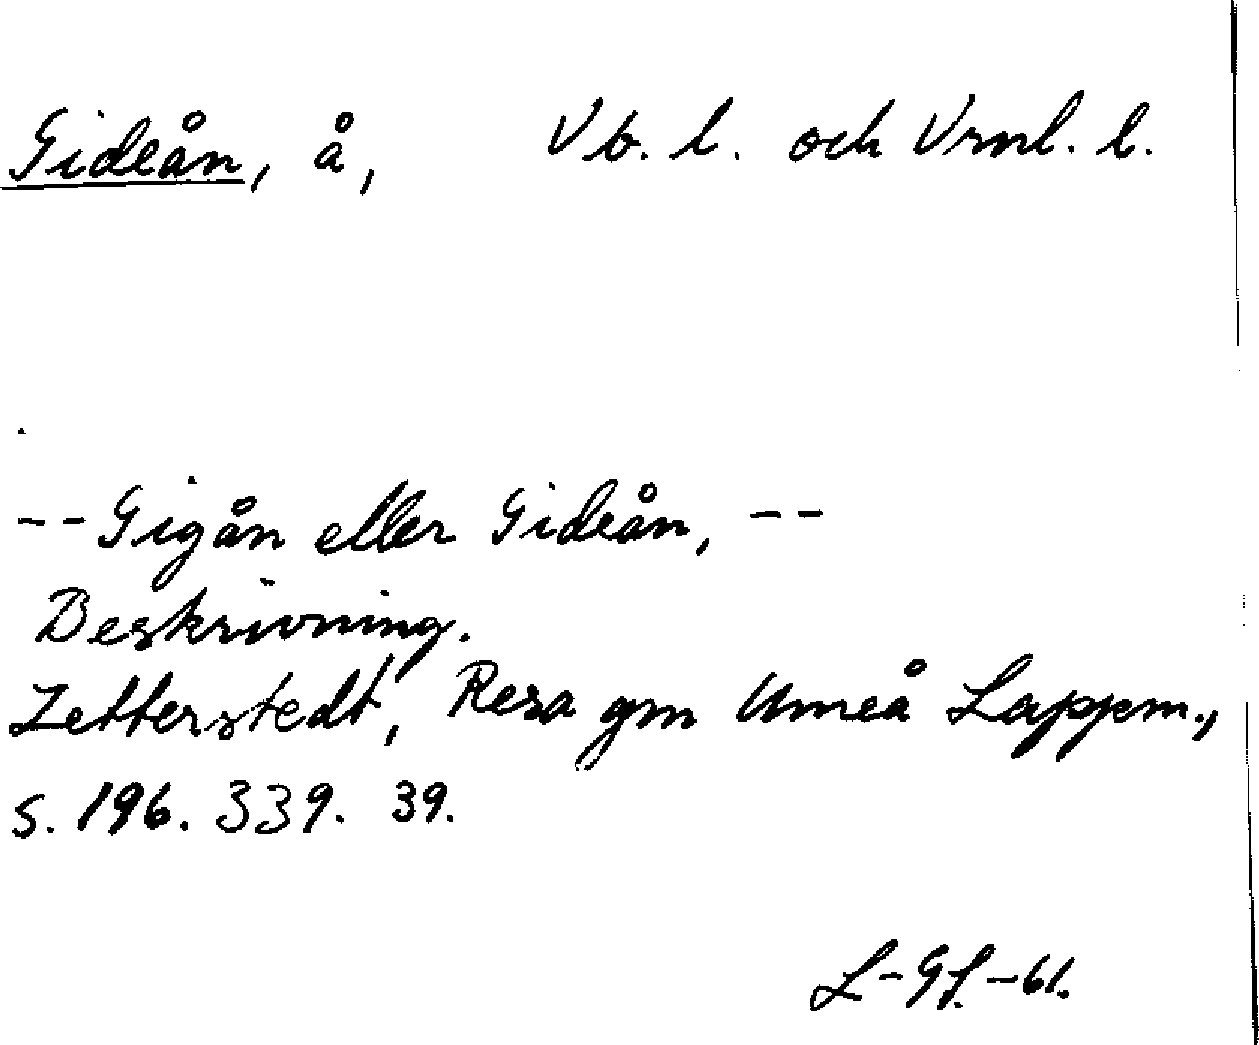 Gideån, å, Vb. l. och Vrnl. l.
-- Gigån eller Gideån, --
Beskrivning.
Zetterstedt, Resa gm Umeå Lappm.,
s. 196. 339. 39.
L-Gf.-61.